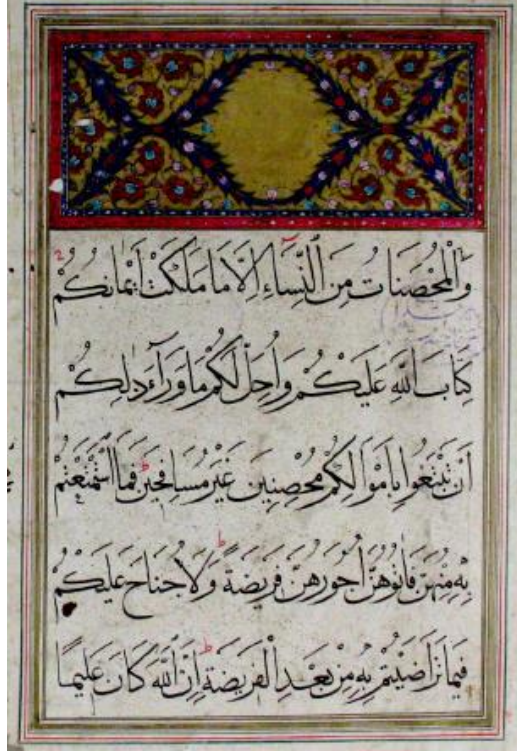 وَالْمُحْصَنَاتُ مِنَ النِّسَاءِ اِلَّا مَا مَلَكَتْ اَيْمَانُكُمْ
كِتَابَ اللّٰهِ عَلَيْكُمْ وَاُحِلَّ لَكُمْ مَا وَرَآءَ ذٰلِكُمْ
اَنْ تَبْتَغُوا بِاَمْوَالِكُمْ مُحْصِنِينَ غَيْرَ مُسَافِحِينَ ط فَمَا اسْتَمْتَعْتُمْ
بِهِ مِنْهُنَّ فَاٰتُوهُنَّ اُجُورَهُنَّ فَرِيضَةً ط وَلَا جُنَاحَ عَلَيْكُمْ
فِيمَا تَرَاضَيْتُمْ بِهِ مِنْ بَعْدِ الْفَرِيضَةِ ط اِنَّ اللّٰهَ كَانَ عَلِيمًا